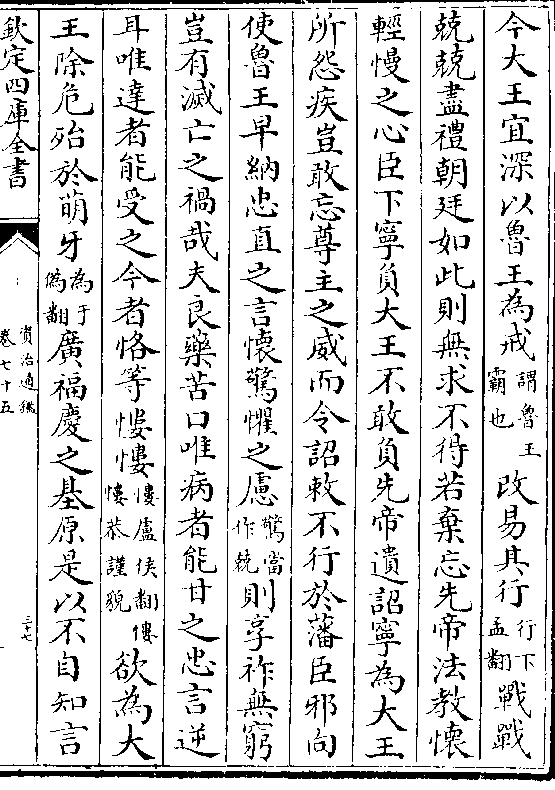 今大王宜深以魯王為戒謂魯王霸也改易其行行下孟翻戰戰
兢兢盡禮朝廷如此則無求不得若棄忘先帝法教懷
輕慢之心臣下寧負大王不敢負先帝遺詔寧為大王
所怨疾豈敢忘尊主之威而令詔敕不行於藩臣邪向
使魯王早納忠直之言懷驚懼之慮驚當作兢則享祚無窮
豈有滅亡之禍哉夫良藥苦口唯病者能甘之忠言逆
耳唯達者能受之今者恪等慺慺慺盧侯翻慺慺恭謹貌欲為大
王除危殆於萌牙為于偽翻廣福慶之基原是以不自知言
欽定四庫全書
資治通鑑
卷七十五